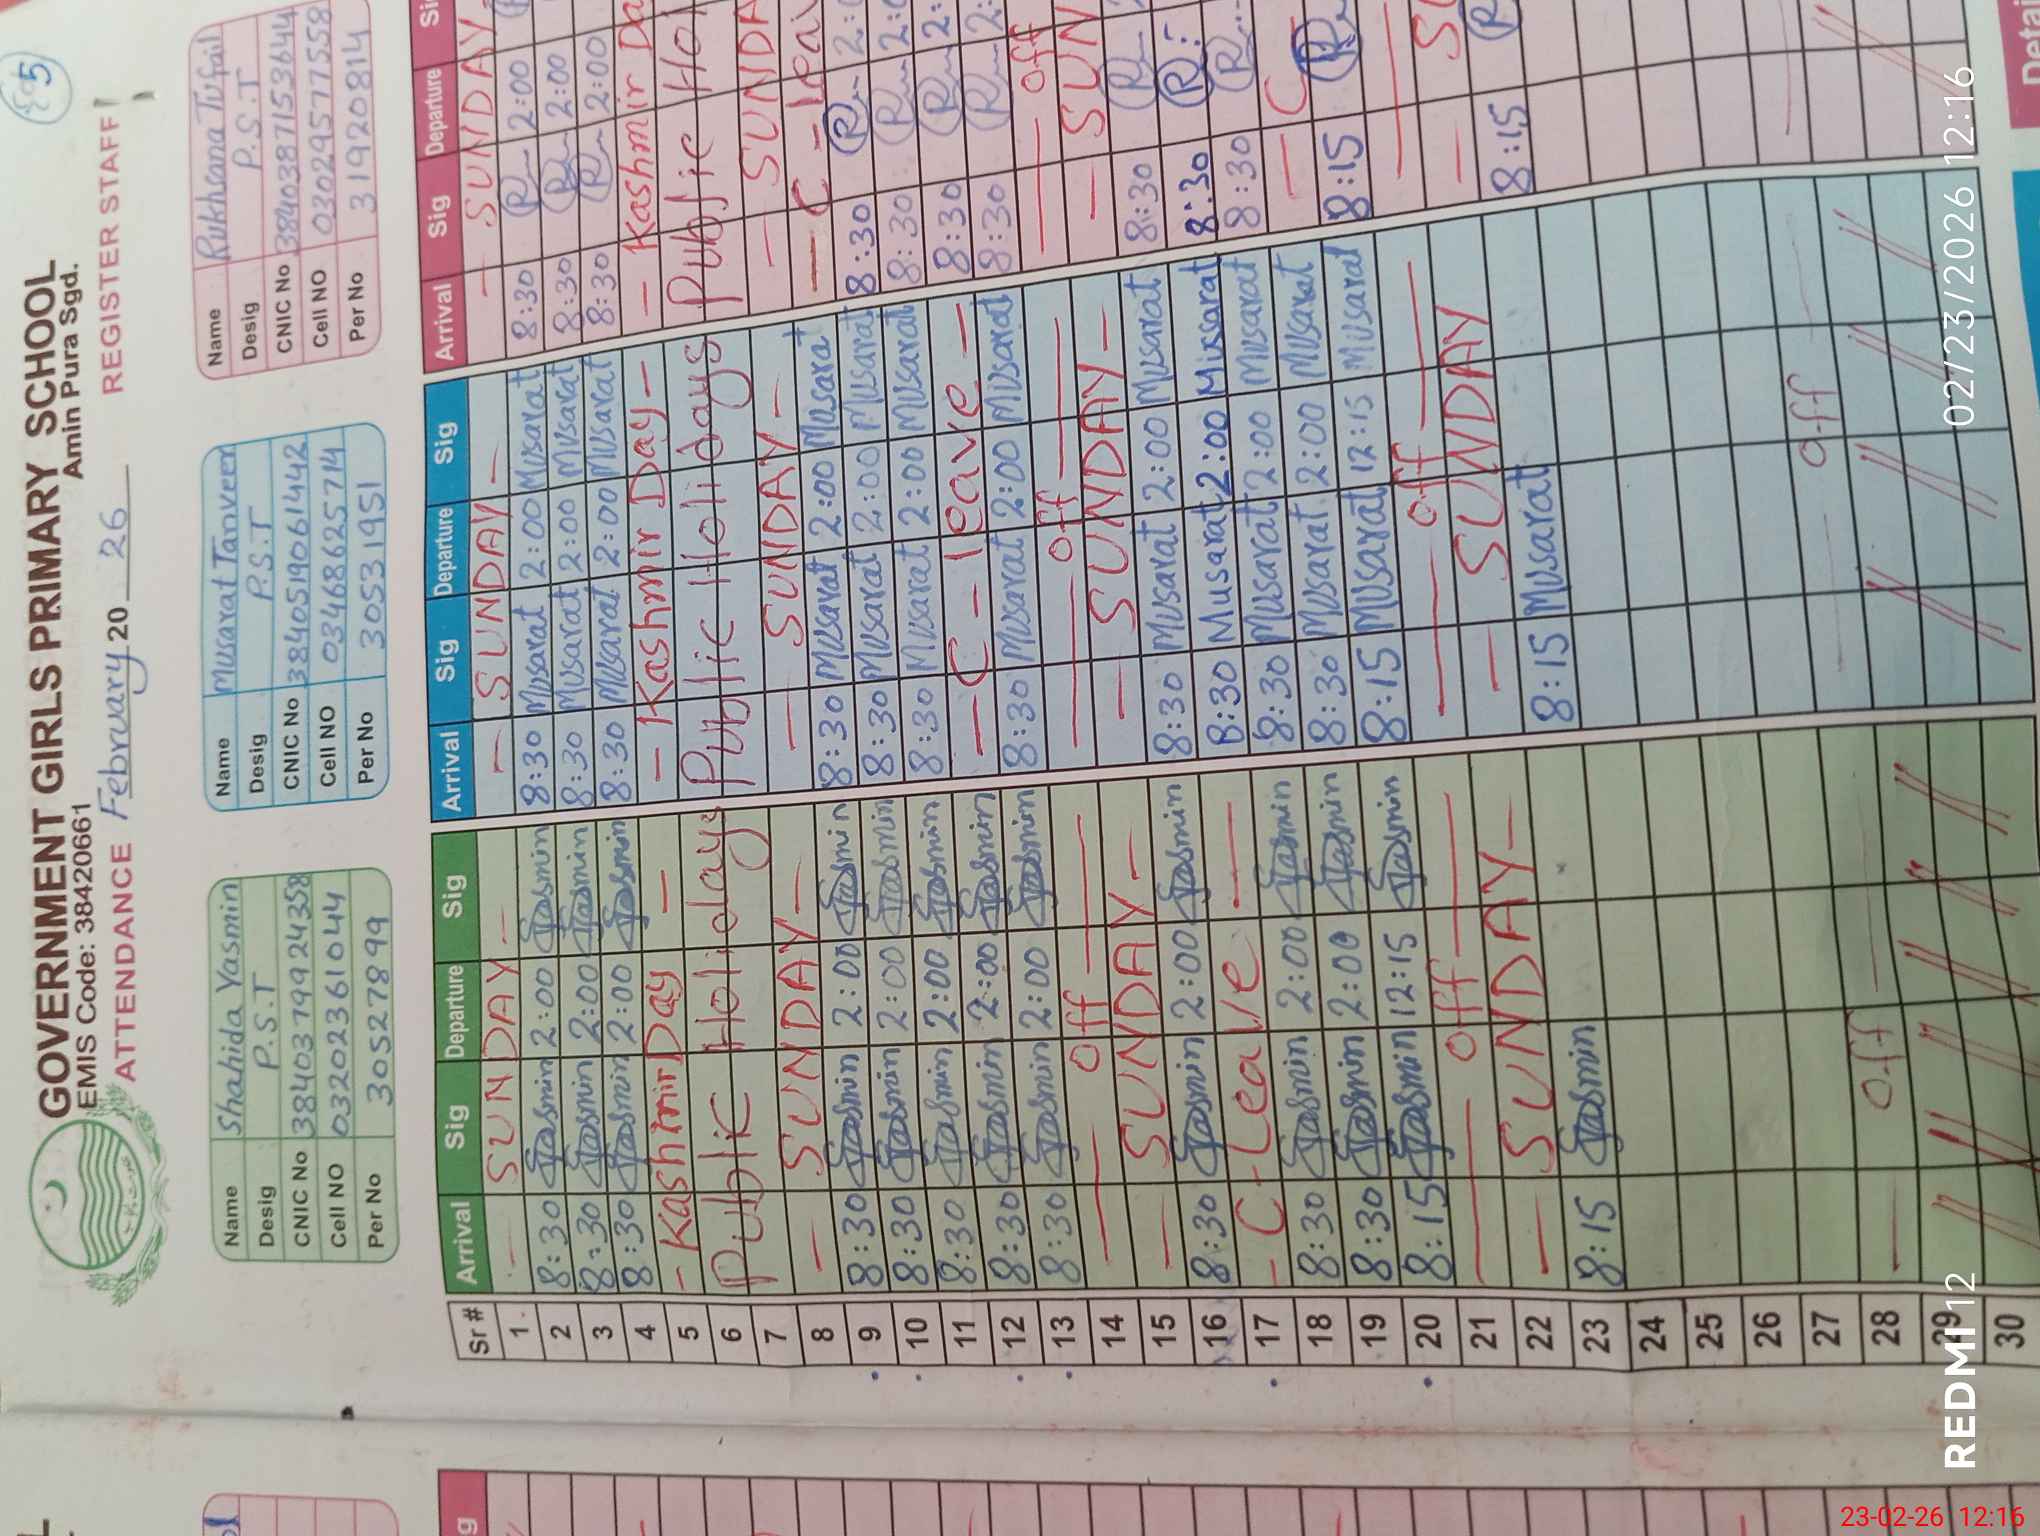 GOVERNMENT GIRLS PRIMARY SCHOOL
EMIS Code: 38420661 Amin Pura Sgd.
ATTENDANCE February 20 26 REGISTER STAFF
5
Name Shahida Yasmin
Desig P.S.T
CNIC No 3840379924358
Cell NO 03202361044
Per No 30527899
Name Musarat Tanveer
Desig P.S.T
CNIC No 3840519061442
Cell NO 03468625714
Per No 30531951
Name Rukhsana Tufail
Desig P.S.T
CNIC No 3840387153644
Cell NO 03029577558
Per No 31920814
Sr # Arrival Sig Departure Sig Arrival Sig Departure Sig Arrival Sig Departure
1 SUNDAY SUNDAY SUNDAY
2 8:30 Yasmin 2:00 Yasmin 8:30 Musarat 2:00 Musarat 8:30 2:00
3 8:30 Yasmin 2:00 Yasmin 8:30 Musarat 2:00 Musarat 8:30 2:00
4 8:30 Yasmin 2:00 Yasmin 8:30 Musarat 2:00 Musarat 8:30 2:00
5 Kashmir Day Kashmir Day Kashmir Da
6 Public Holidays Public Holidays Public Hol
7
8 SUNDAY SUNDAY SUNDA
9 8:30 Yasmin 2:00 Yasmin 8:30 Musarat 2:00 Musarat C-leav
10 8:30 Yasmin 2:00 Yasmin 8:30 Musarat 2:00 Musarat 8:30
11 8:30 Yasmin 2:00 Yasmin 8:30 Musarat 2:00 Musarat 8:30
12 8:30 Yasmin 2:00 Yasmin C-leave 8:30
13 8:30 Yasmin 2:00 Yasmin 8:30 Musarat 2:00 Musarat 8:30
14 off off off
15 SUNDAY SUNDAY SUN
16 8:30 Yasmin 2:00 Yasmin 8:30 Musarat 2:00 Musarat 8:30
17 C-Leave 8:30 Musarat 2:00 Musarat 8:30
18 8:30 Yasmin 2:00 Yasmin 8:30 Musarat 2:00 Musarat 8:30
19 8:30 Yasmin 2:00 Yasmin 8:30 Musarat 2:00 Musarat C
20 8:15 Yasmin 12:15 Yasmin 8:15 Musarat 12:15 Musarat 8:15
21 off off
22 SUNDAY SUNDAY
23 8:15 Yasmin 8:15 Musarat 8:15
24
25
26
27
28 off off
29
30
Detai
REDMI 12
02/23/2026 12:16
23-02-26 12:16